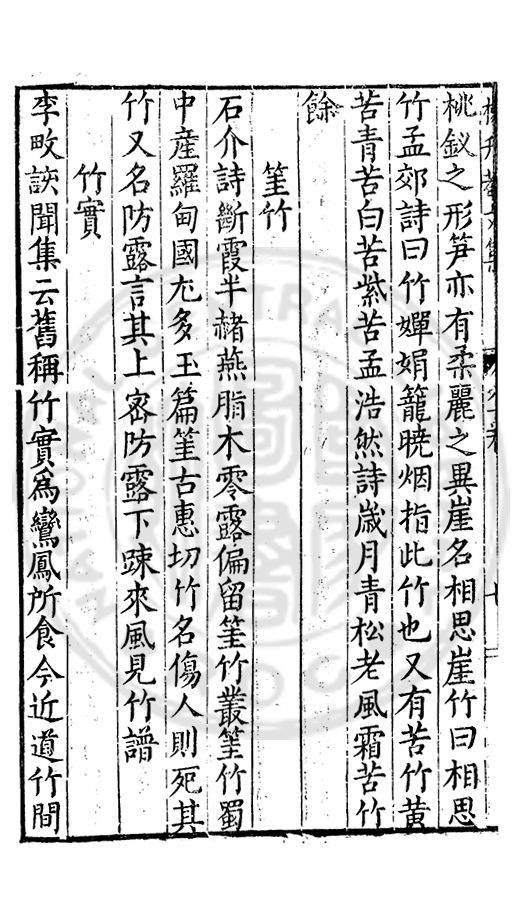 桃釵之形笋亦有柔麗之異崖名相思崖竹曰相思
竹孟郊詩曰竹嬋娟籠曉烟指此竹也又有苦竹黄
苦青苦白苦紫苦孟浩然詩歲月青松老風霜苦竹
餘
䈽竹
石介詩斷霞半赭燕脂木零露偏留䈽竹叢䈽竹蜀
中產羅甸國尤多玉篇䈽古惠切竹名傷人則死其
竹又名防露言其上宻防露下踈來風見竹譜
竹實
李畋該聞集云舊稱竹實為鸞鳳所食今近道竹間